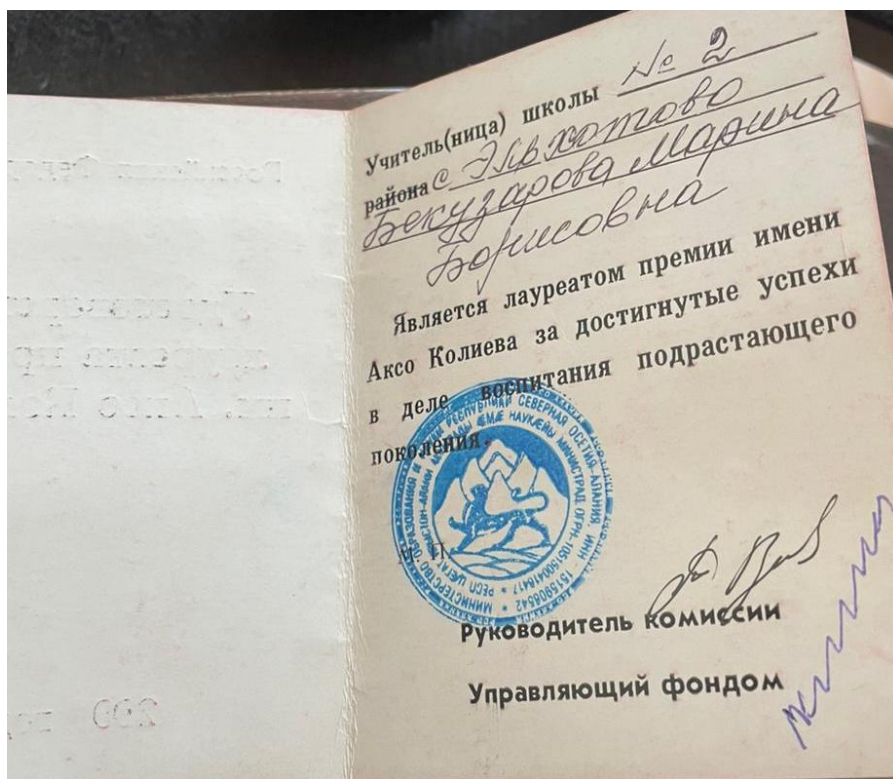 Учитель(ница) школы № 2
района с. Эльхотово
Бекузарова Марина
Борисовна
Является лауреатом премии имени
Аксо Колиева за достигнутые успехи
в деле воспитания подрастающего
поколения.
М. П.
Руководитель комиссии
Управляющий фондом